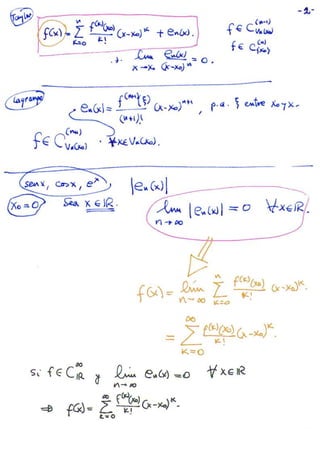 -2-
Taylor
f(x) = Σ_{k=0}^{n} f^{(k)}(x₀)/k! (x-x₀)^k + en(x).
f ∈ C^{(n-1)}_{Va(x₀)}
f ∈ C^{(n)}_{(x₀)}
lim_{x→x₀} en(x)/(x-x₀)^n = 0.
Lagrange
en(x) = f^{(n+1)}(ξ)/(n+1)! (x-x₀)^{n+1}, p.a. ξ entre x₀ y x.
f ∈ C^{(n+1)}_{Va(x₀)} · ∀x∈Va(x₀).
senx, cosx, e^x, |en(x)|
x₀=0 Sea x ∈ ℝ.
lim_{n→∞} |en(x)| = 0 ∀x∈ℝ.
f(x) = lim_{n→∞} Σ_{k=0}^{n} f^{(k)}(x₀)/k! (x-x₀)^k
= Σ_{k=0}^{∞} f^{(k)}(x₀)/k! (x-x₀)^k.
si f ∈ C^∞_ℝ y lim_{n→∞} en(x) = 0 ∀x∈ℝ
⇒ f(x) = Σ_{k=0}^{∞} f^{(k)}(x₀)/k! (x-x₀)^k.